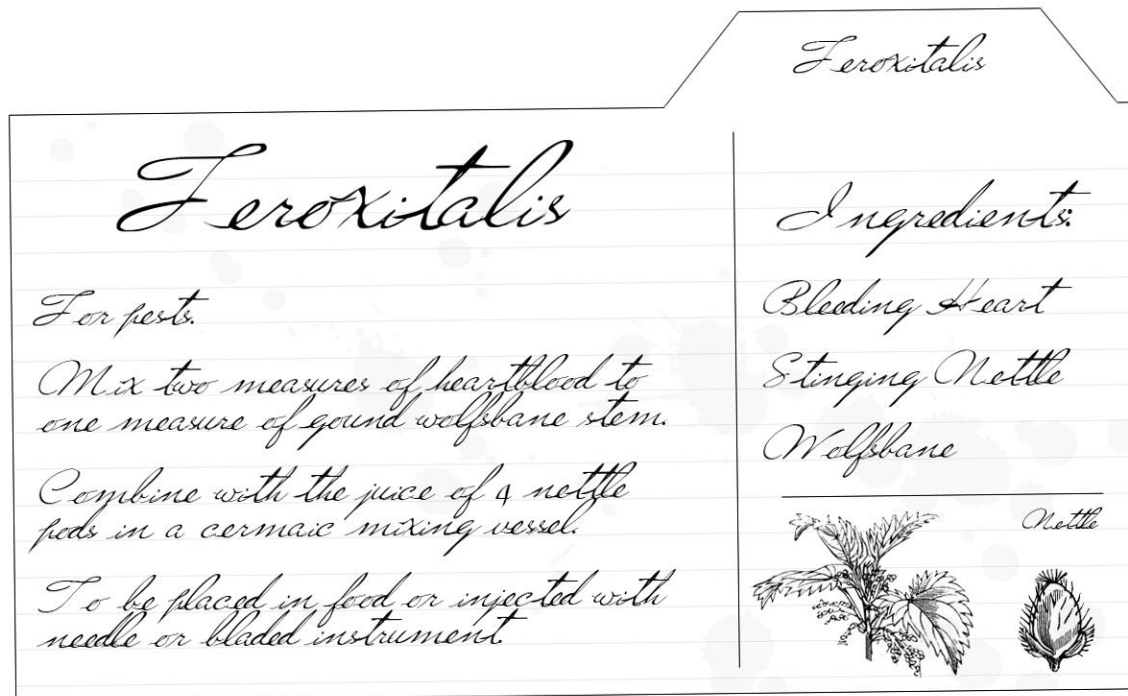 Feroxitalis
Feroxitalis
For pests.
Mix two measures of heartblood to
one measure of gound wolfsbane stem.
Combine with the juice of 4 nettle
pods in a cermaic mixing vessel.
To be placed in food or injected with
needle or bladed instrument
Ingredients:
Bleeding Heart
Stinging Nettle
Wolfsbane
Nettle